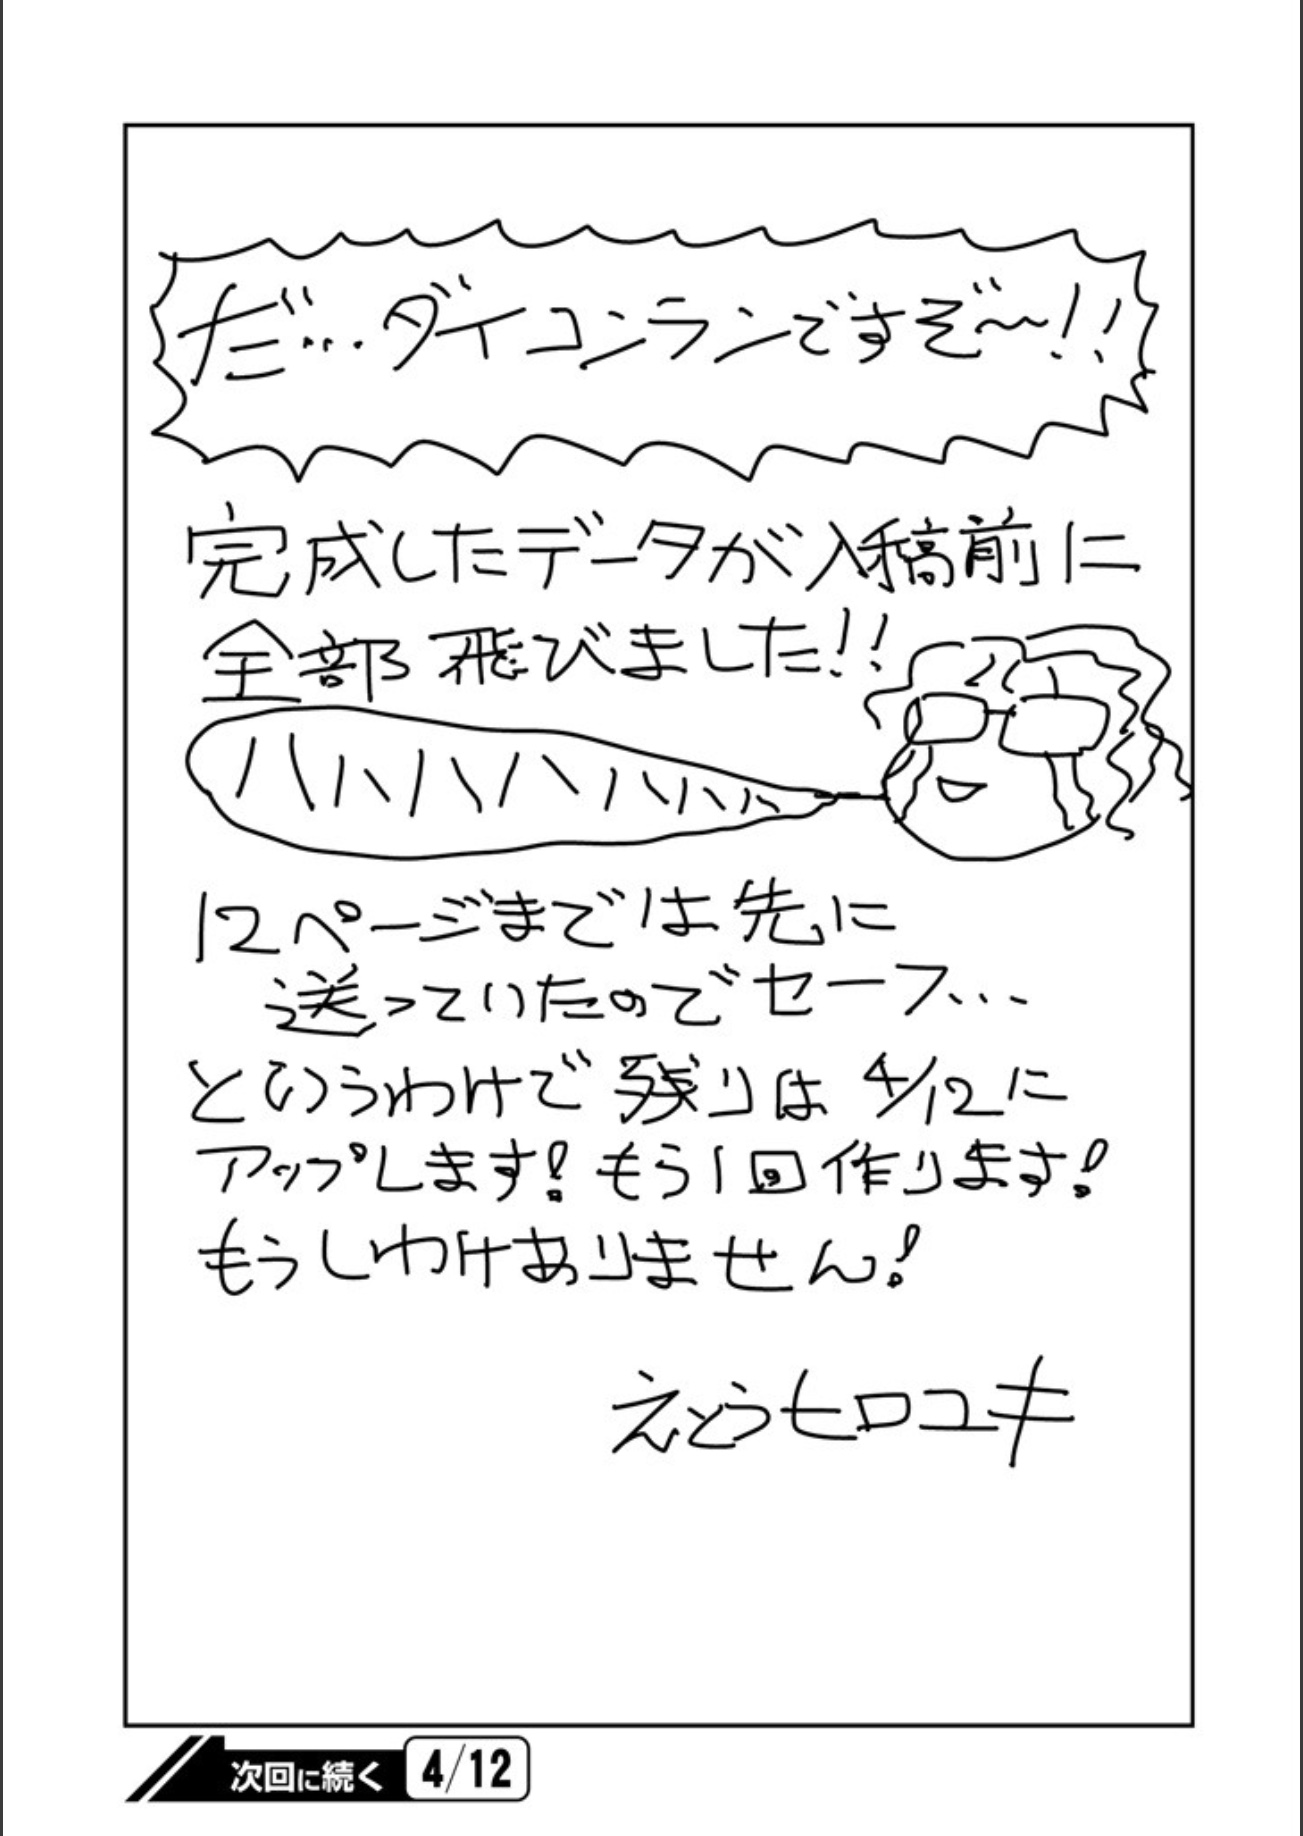 だ…ダイコンランですぞ〜!!
完成したデータが入稿前に
全部飛びました!!
ハハハハハハハ
12ページまでは先に
送っていたのでセーフ…
というわけで残りは4/12に
アップします!もう1回作ります!
もうしわけありません!
えとうヒロユキ
次回に続く 4/12